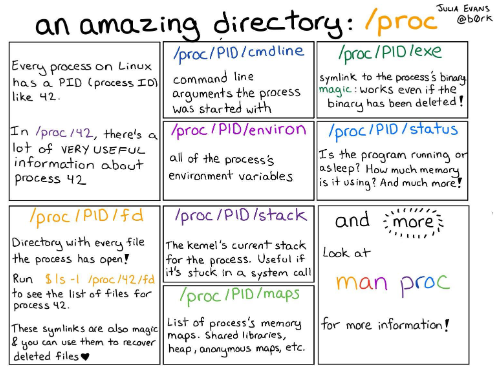 an amazing directory: /proc
JULIA EVANS
@b0rk
Every process on Linux
has a PID (process ID)
like 42.
In /proc/42, there's a
lot of VERY USEFUL
information about
process 42
/proc/PID/cmdline
command line
arguments the process
was started with
/proc/PID/exe
symlink to the process's binary
magic: works even if the
binary has been deleted!
/proc/PID/environ
all of the process's
environment variables
/proc/PID/status
Is the program running or
asleep? How much memory
is it using? And much more!
/proc/PID/fd
Directory with every file
the process has open!
Run $ls -l /proc/42/fd
to see the list of files for
process 42.
These symlinks are also magic
& you can use them to recover
deleted files ♥
/proc/PID/stack
The kernel's current stack
for the process. Useful if
it's stuck in a system call
/proc/PID/maps
List of process's memory
maps. Shared libraries,
heap, anonymous maps, etc.
and more
Look at
man proc
for more information!